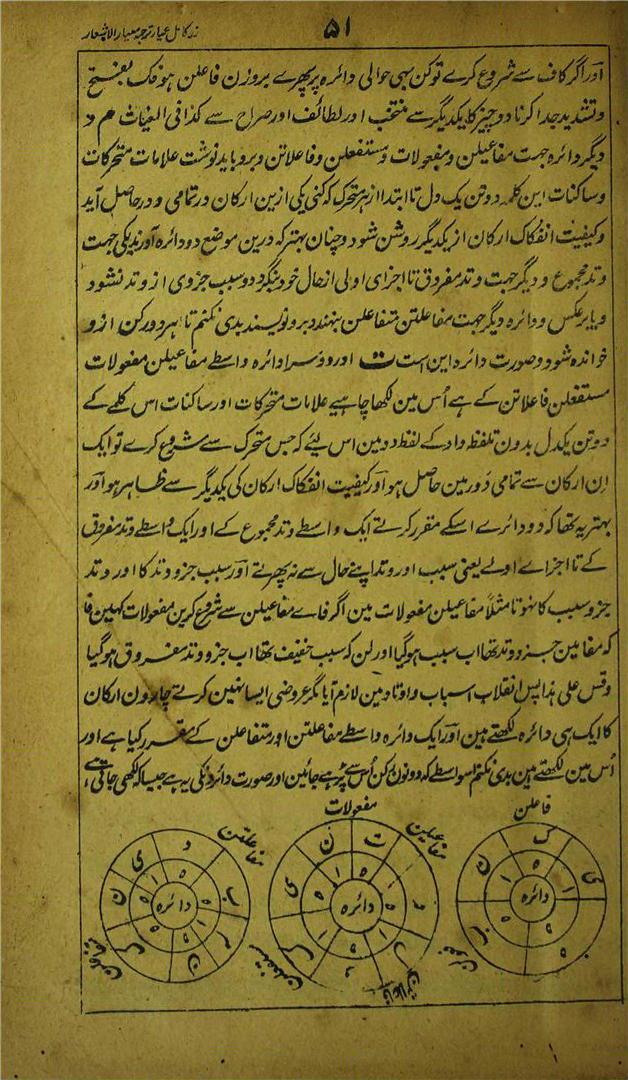 زر کامل عیار ترجمہ معیار الاشعار
۵۱
اور اگر کاف سے شروع کرے تو کن بہی حوالی دائرہ پر پھرے بروزن فاعلن ہو فک بفتح
و تشدید جدا کرنا دو چیز کا یکدیگر سے منتخب اور لطائف اور صراح سے کذا فی الغیاث م و
دیگر دائرہ جہت مفاعیلن و مفعولات و مستفعلن و فاعلاتن و برو باید نوشت علامات متحرکات
و ساکنات این کلمہ دو تن یک دل تا ابتدا از ہر متحرک کہ کنی یکی ازین ارکان در تمامی دور حاصل آید
و کیفیت انفکاک ارکان از یکدیگر روشن شود و چنان بہتر کہ درین موضع دو دائرہ آورند یکی جہت
وتد مجموع و دیگر جہت وتد مفروق تا اجزای اولی از حال خود بنگردد و سبب جزوی از وتد نشود
و یا برعکس و دائرہ دیگر جہت مفاعلتن متفاعلن بنہند و برو نویسند بدی نکنم تا ہر دو رکن ازو
خواندہ شود و صورت دائرہ این است ت اور دوسرا دائرہ واسطے مفاعیلن مفعولات
مستفعلن فاعلاتن کے ہے اُس مین لکھا چاہیے علامات متحرکات اور ساکنات اس کلمے کے
دو تن یکدل بدون تلفظ واو کے لفظ دو مین اس لیئے کہ جس متحرک سے شروع کرے تو ایک
اِن ارکان سے تمامی دَور مین حاصل ہو اور کیفیت انفکاک ارکان کی یکدیگر سے ظاہر ہو اور
بہتر یہ تھا کہ دو دائرے اسکے مقرر کرتے ایک واسطے وتد مجموع کے اور ایک واسطے وتد مفروق
کے تا اجزاے اولے یعنی سبب اور وتد اپنے حال سے نہ پھرتے اور سبب جزو وتد کا اور وتد
جزو سبب کا نہوتا مثلاً مفاعیلن مفعولات مین اگر فاے مفاعیلن سے شروع کرین مفعولات کہین فا
کہ مفا مین جزو وتد تھا اب سبب ہوگیا اور لن کہ سبب خفیف تھا اب جزو وتد مفروق ہوگیا
وقس علی ہذا پس انقلاب اسباب و اوتاد مین لازم آیا مگر عروضی ایسا نہین کرتے چارون ارکان
کا ایک ہی دائرہ لکھتے ہین اور ایک دائرہ واسطے مفاعلتن اور متفاعلن کے مقرر کیا ہے اور
اُس مین لکھتے ہین بدی نکنم اسواسطے کہ دونون رکن اُس سے پڑھے جائین اور صورت دائرونکی یہ ہے جیسا کہ لکھی جاتی ہے
فاعلن
فعولن
دائرہ
ک
ن
ی
ب
مفعولات
مفاعیلن
مستفعلن
فاعلاتن
دائرہ
ت
ن
ی
ک
د
ل
مفاعلتن
متفاعلن
دائرہ
د
ی
ن
ک
ن
م
ب